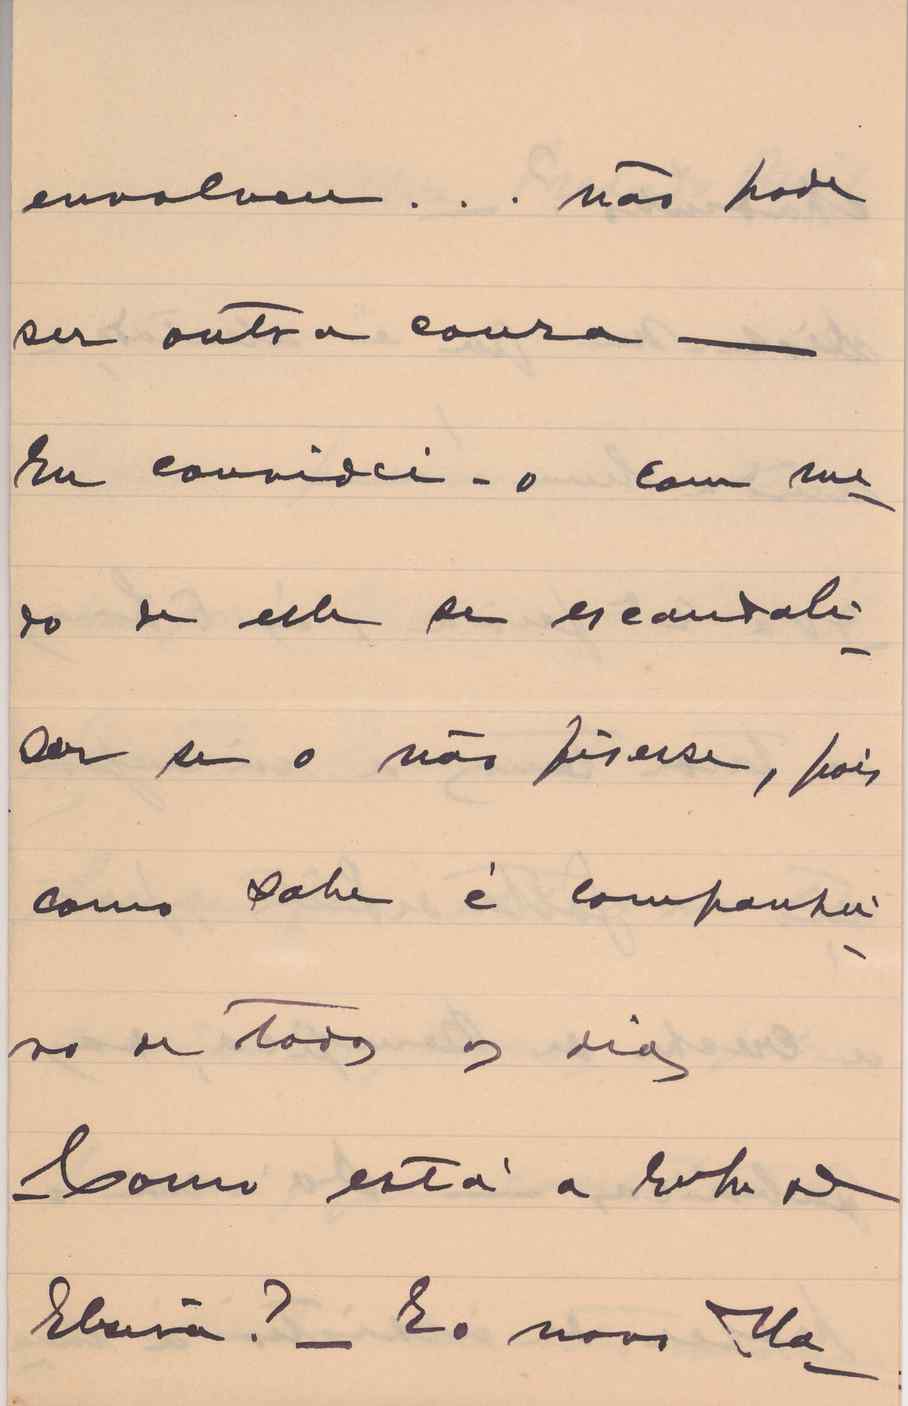 envolveu... não pode
ser outra couza —
Eu convidei-o com me-
do de este se escandali-
zar se o não fizesse, pois
como sabe é companhei-
ro de todos os dias
— Como está a de
? — E o novo Ma-